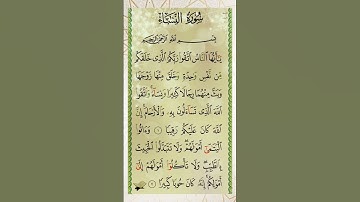 سُورَةُ النِّسَاءِ
بِسْمِ اللَّهِ الرَّحْمَٰنِ الرَّحِيمِ
يَٰٓأَيُّهَا النَّاسُ اتَّقُوا۟ رَبَّكُمُ الَّذِى خَلَقَكُم
مِّن نَّفْسٍ وَٰحِدَةٍ وَخَلَقَ مِنْهَا زَوْجَهَا
وَبَثَّ مِنْهُمَا رِجَالًا كَثِيرًا وَنِسَآءً ۚ وَاتَّقُوا۟
اللَّهَ الَّذِى تَسَآءَلُونَ بِهِۦ وَالْأَرْحَامَ ۚ إِنَّ
اللَّهَ كَانَ عَلَيْكُمْ رَقِيبًا ١ وَءَاتُوا۟
الْيَتَٰمَىٰٓ أَمْوَٰلَهُمْ ۖ وَلَا تَتَبَدَّلُوا۟ الْخَبِيثَ
بِالطَّيِّبِ ۖ وَلَا تَأْكُلُوٓا۟ أَمْوَٰلَهُمْ إِلَىٰٓ
أَمْوَٰلِكُمْ ۚ إِنَّهُۥ كَانَ حُوبًا كَبِيرًا ٢